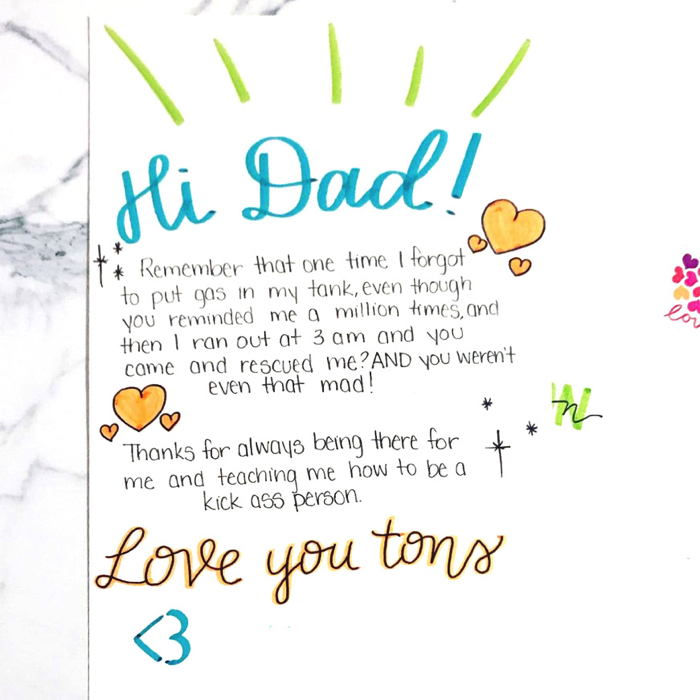 Hi Dad!
Remember that one time I forgot
to put gas in my tank, even though
you reminded me a million times, and
then I ran out at 3 am and you
came and rescued me? AND you weren't
even that mad!
Thanks for always being there for
me and teaching me how to be a
kick ass person.
Love you tons
<3